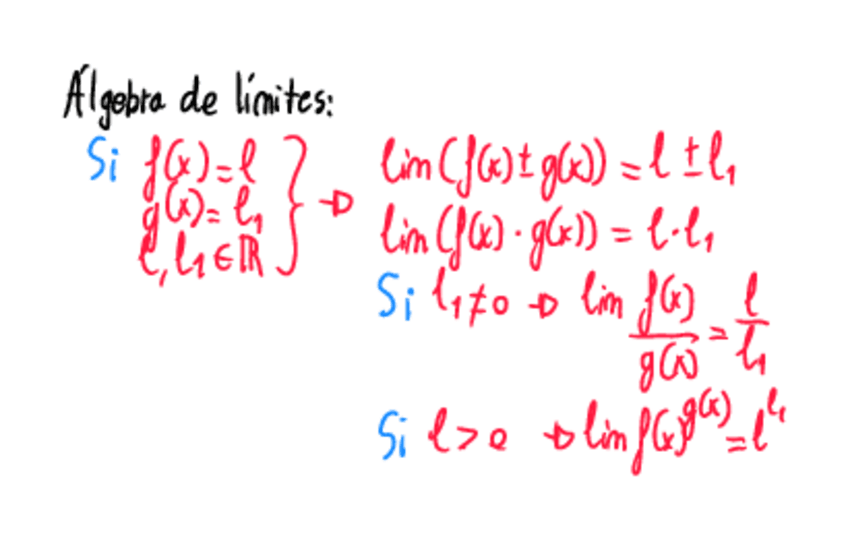 Álgebra de límites:
Si f(x)=l
g(x)=l₁
l, l₁ ∈ ℝ
} → lim (f(x) ± g(x)) = l ± l₁
lim (f(x) · g(x)) = l · l₁
Si l₁ ≠ 0 → lim f(x)/g(x) = l/l₁
Si l > 0 → lim f(x)^g(x) = l^l₁